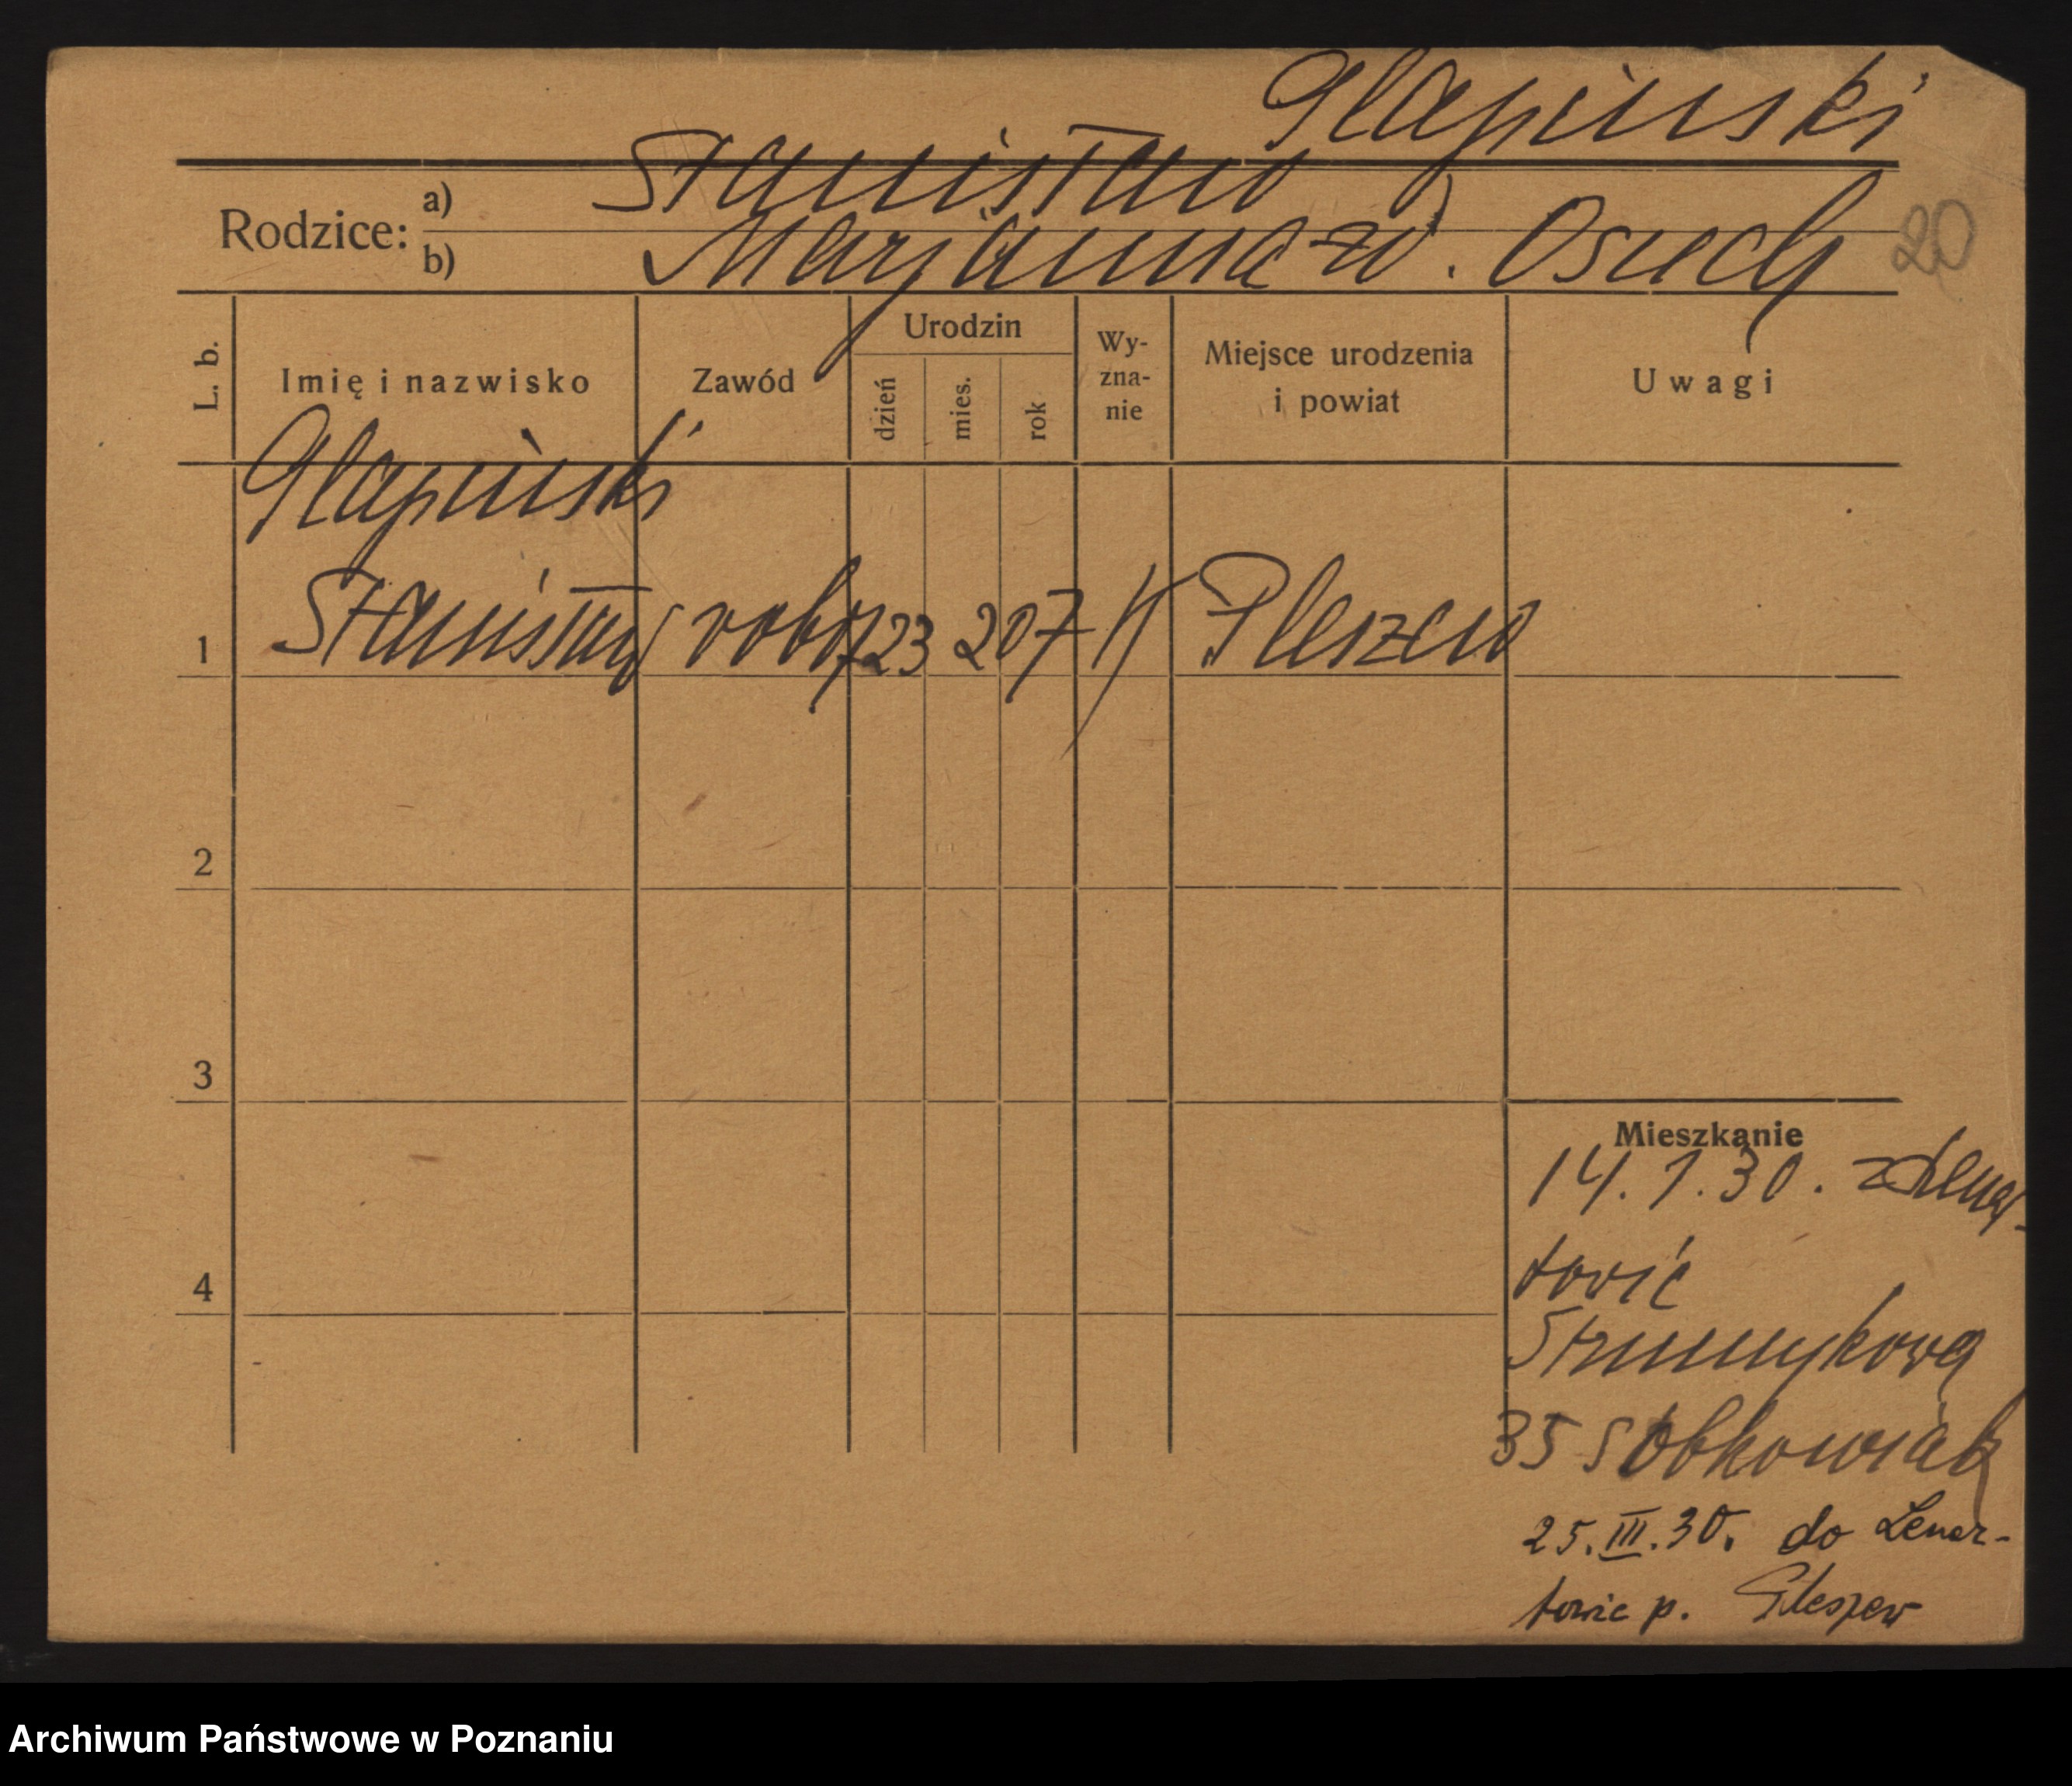 Glapiński
Rodzice: a) Stanisław
b) Marjanna z d. Osuch
20
L. b. Imię i nazwisko Zawód Urodzin dzień mies. rok Wy-zna-nie Miejsce urodzenia i powiat Uwagi
Glapiński
1 Stanisław robt 23 2 07 K Pleszew
2
3
4
Mieszkanie
14.1.30. z Lenar-
towic
Strumykowa
35 Sobkowiak
25.III.30. do Lenar-
towic p. Pleszew
Archiwum Państwowe w Poznaniu